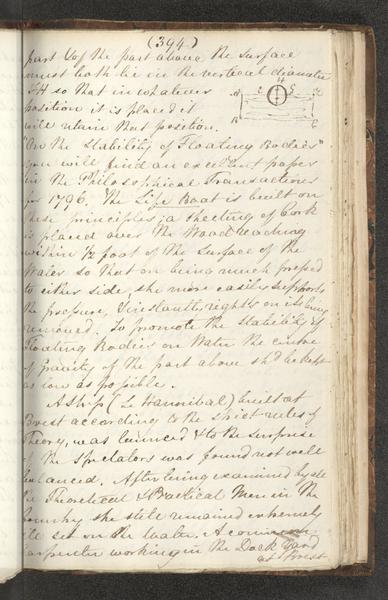 (394)
part & of the part above the surface
must both lie in the vertical diameter
FH so that in whatever
position it is placed it
will retain that position.
"On the Stability of Floating Bodies"
you will find an excellent paper
in the Philosophical Transactions
for 1796. The Life Boat is built on
these principles; a sheeting of Cork
is placed over the Wood reaching
within 1/2 foot of the surface of the
Water so that on being much pressed
to either side, she more easily supports
the pressure, & instantly rights on its being
removed. To promote the stability of
Floating Bodies on Water the centre
of Gravity of the part above shd be kept
as low as possible.
A Ship (Le Hannibal) built at
Brest according to the strict rules of
Theory, was launced & to the surprise
of the Spectators was found not well
balanced. After being examined by all
the Theoretical & Practical Men in the
Country she still remained extremely
ill set on the Water. A common
Carpenter working in the Dock Yard
at Brest